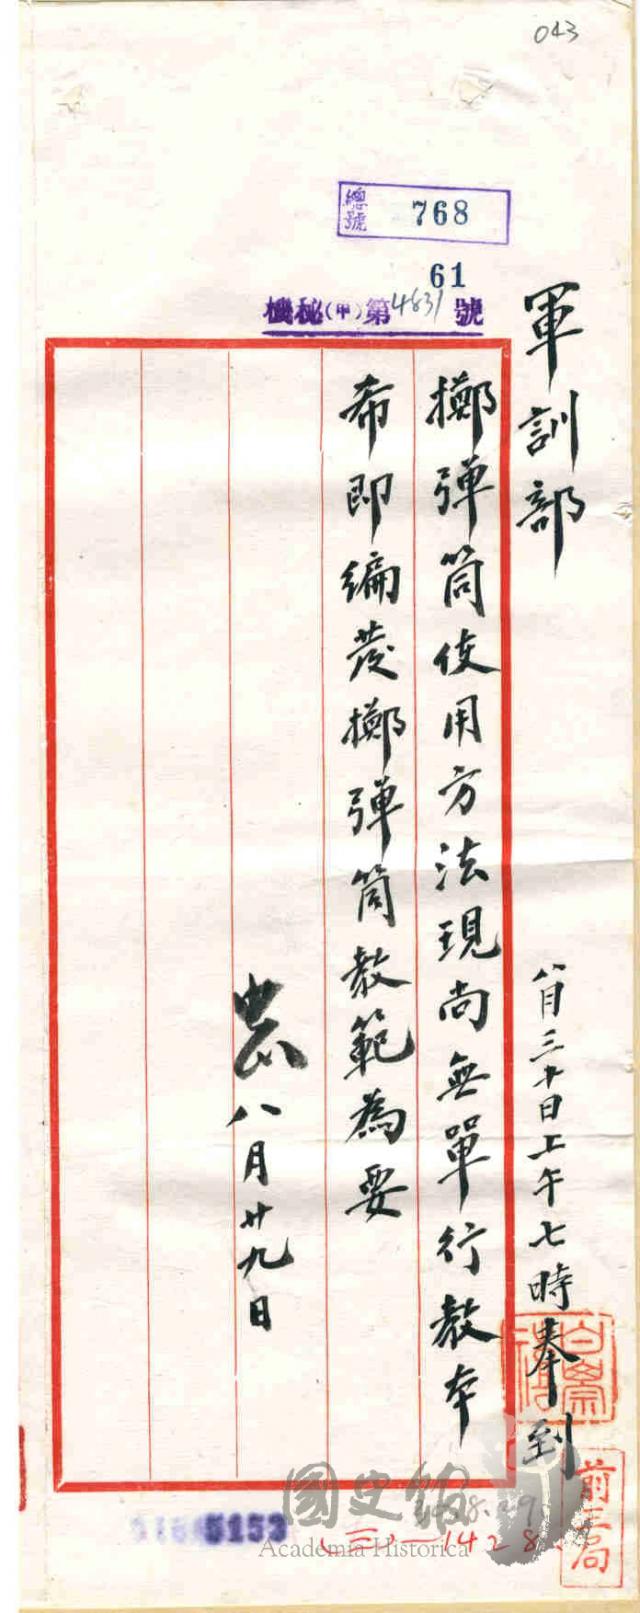 043
總號 768
61
機秘(甲)第4831號
軍訓部
八月三十日上午七時奉到
擲彈筒使用方法現尚無單行教本
希即編發擲彈筒教範為要
中正 八月廿九日
5153
國史館
Academia Historica
(三)—1428